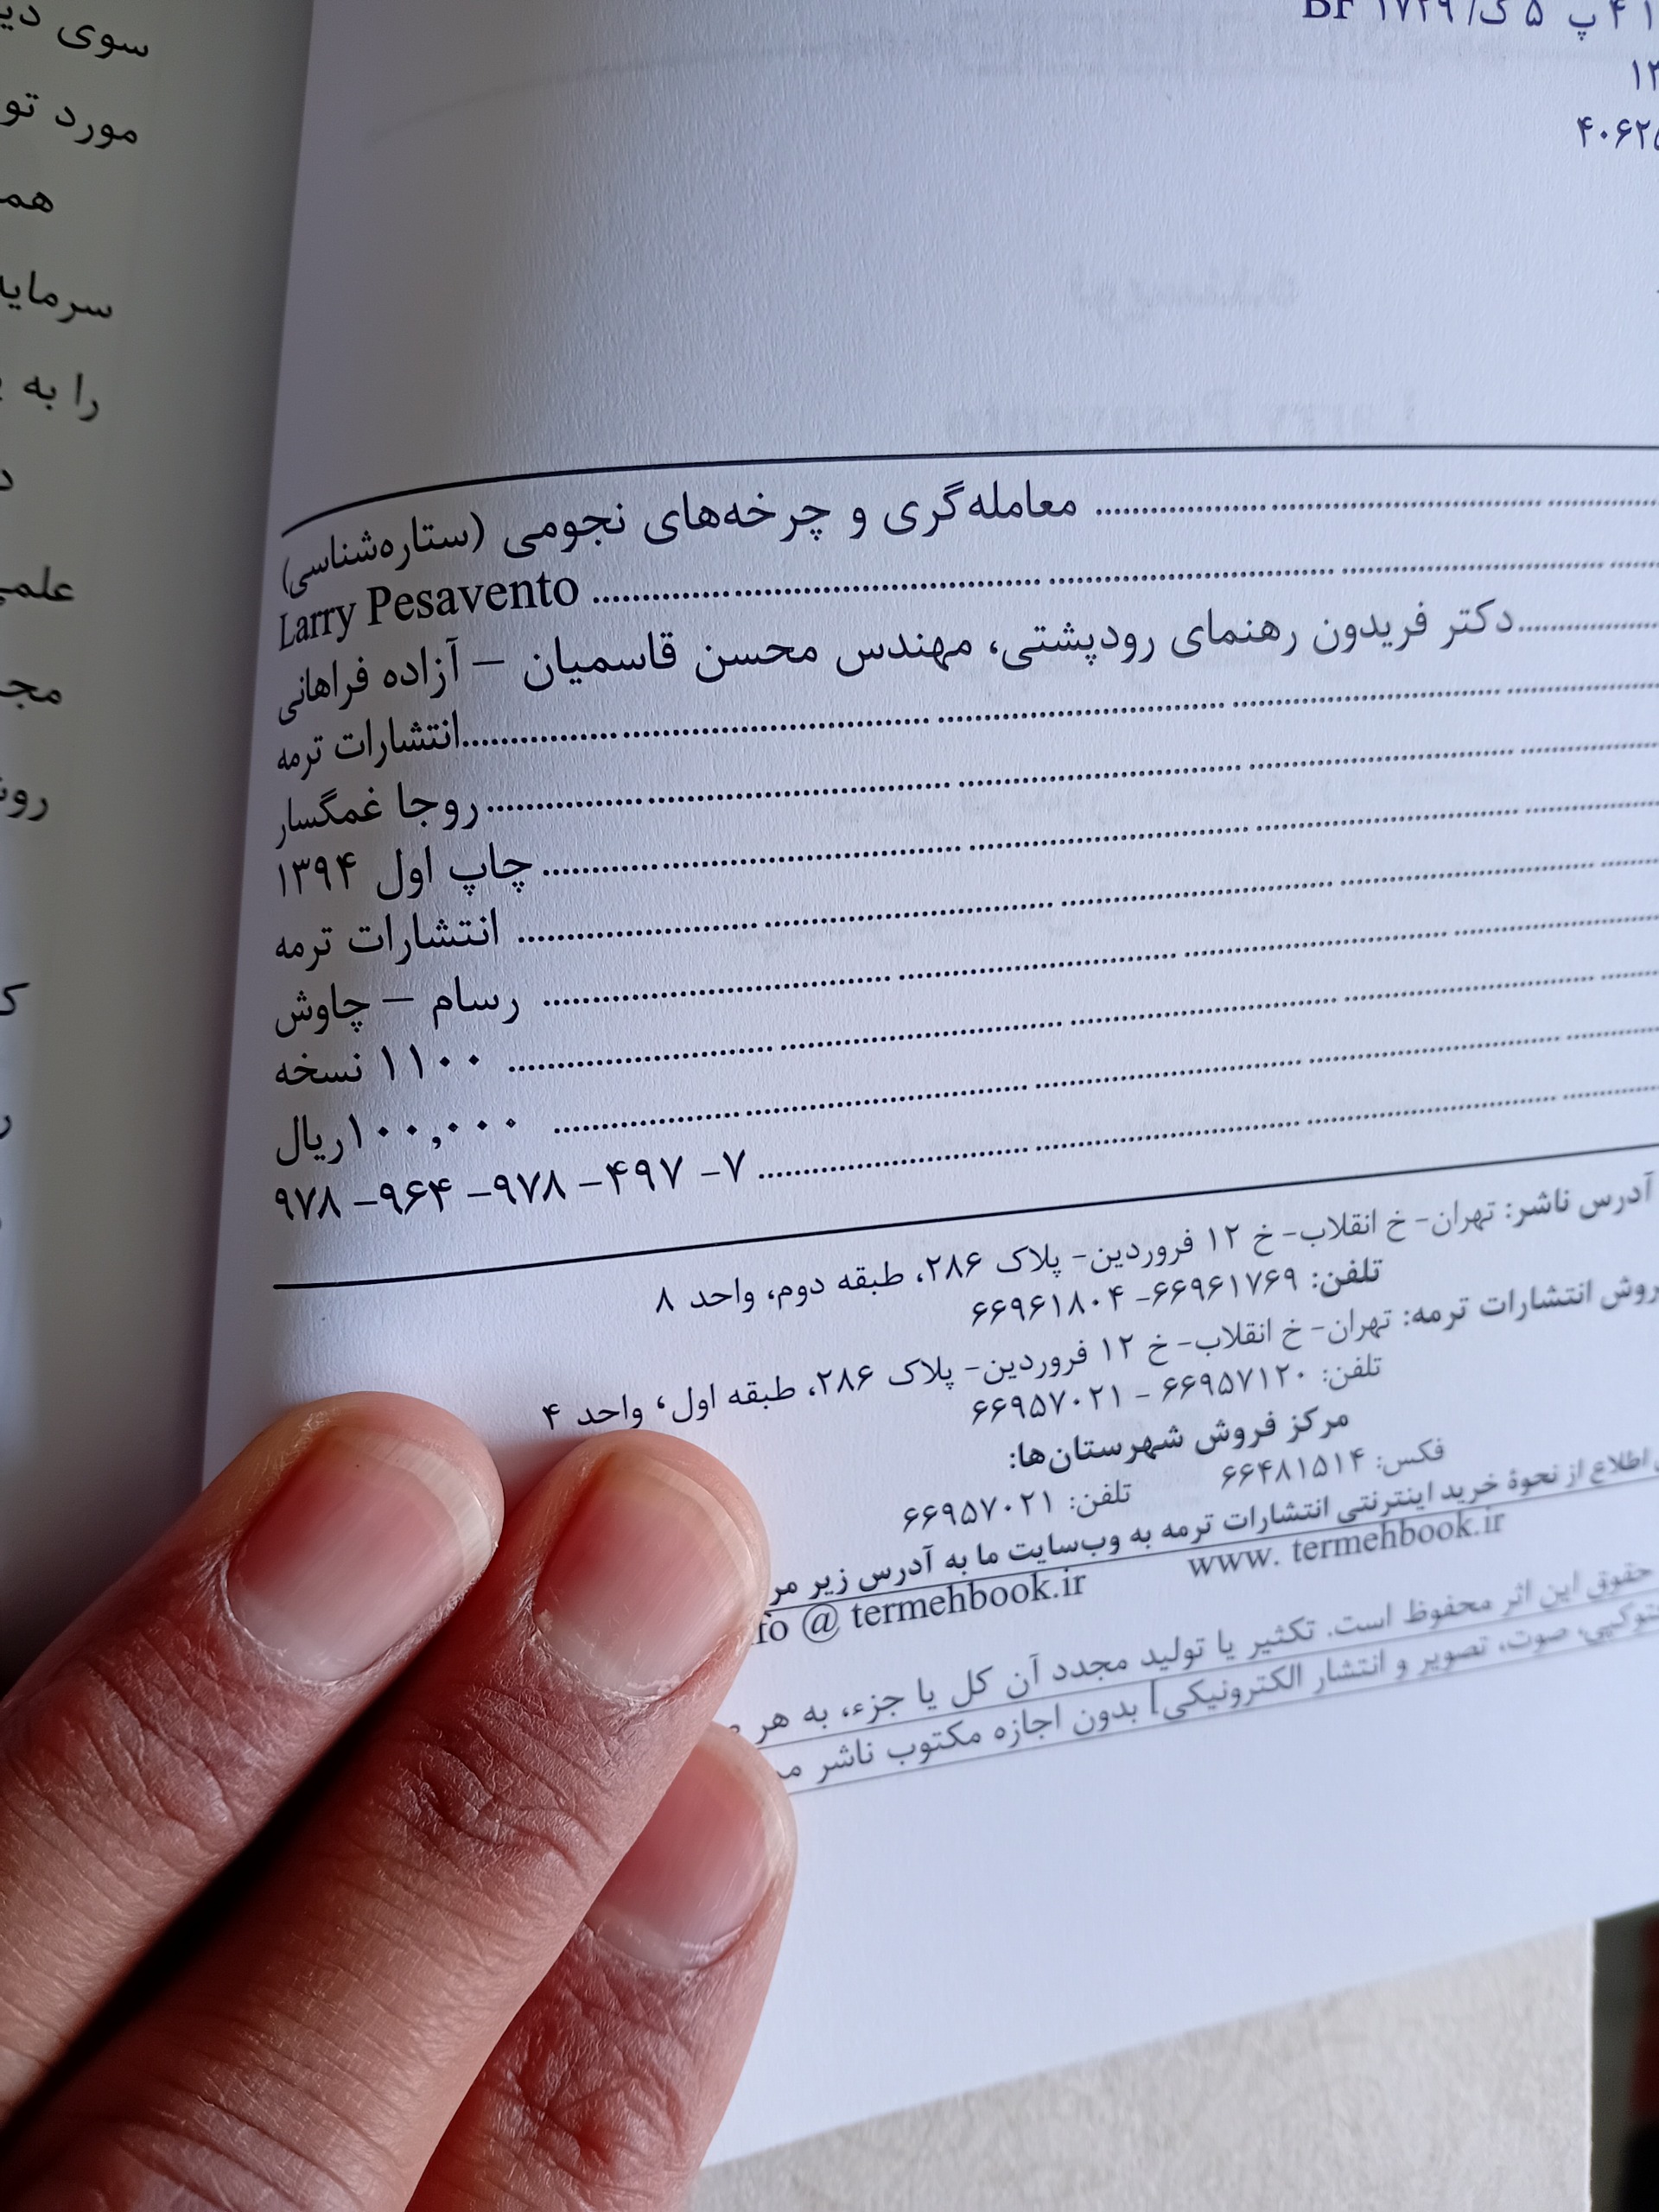 سوی
مورد
سرمایه
را به
BF ۱۷۲۹
معامله‌گری و چرخه‌های نجومی (ستاره‌شناسی)
Larry Pesavento
دکتر فریدون رهنمای رودپشتی، مهندس محسن قاسمیان – آزاده فراهانی
انتشارات ترمه
روجا غمگسار
چاپ اول ۱۳۹۴
انتشارات ترمه
رسام – چاوش
۱۱۰۰ نسخه
۱۰۰,۰۰۰ریال
۹۷۸ –۹۶۴ –۹۷۸ –۴۹۷ –۷
آدرس ناشر: تهران- خ انقلاب- خ ۱۲ فروردین- پلاک ۲۸۶، طبقه دوم، واحد ۸
تلفن: ۶۶۹۶۱۷۶۹- ۶۶۹۶۱۸۰۴
انتشارات ترمه: تهران- خ انقلاب- خ ۱۲ فروردین- پلاک ۲۸۶، طبقه اول، واحد ۴
تلفن: ۶۶۹۵۷۱۲۰ - ۶۶۹۵۷۰۲۱
مرکز فروش شهرستان‌ها:
فکس: ۶۶۴۸۱۵۱۴ تلفن: ۶۶۹۵۷۰۲۱
اطلاع از نحوۀ خرید اینترنتی انتشارات ترمه به وب‌سایت ما به آدرس زیر
www. termehbook.ir
@ termehbook.ir
حقوق این اثر محفوظ است. تکثیر یا تولید مجدد آن کل یا جزء، به هر
صوت، تصویر و انتشار الکترونیکی] بدون اجازه مکتوب ناشر